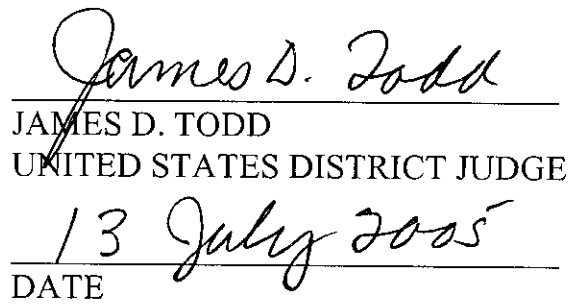 James D. Todd
JAMES D. TODD
UNITED STATES DISTRICT JUDGE
13 July 2005
DATE